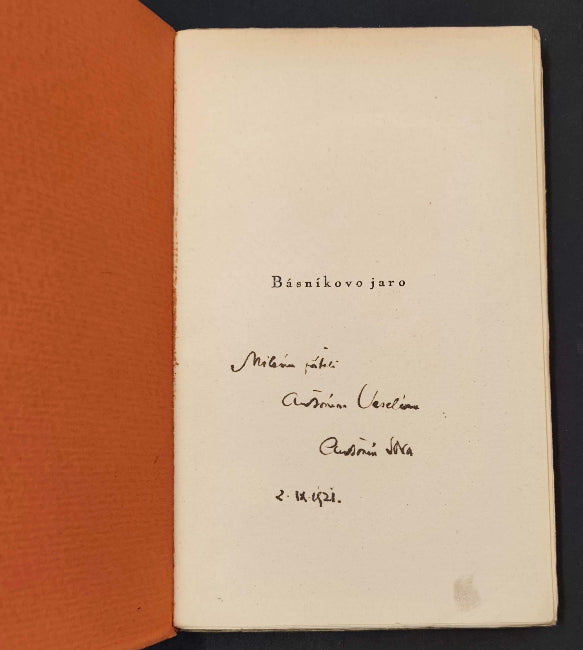 Básníkovo jaro
Milému příteli
Antonínu Veselému
Antonín Sova
2. IX. 1921.